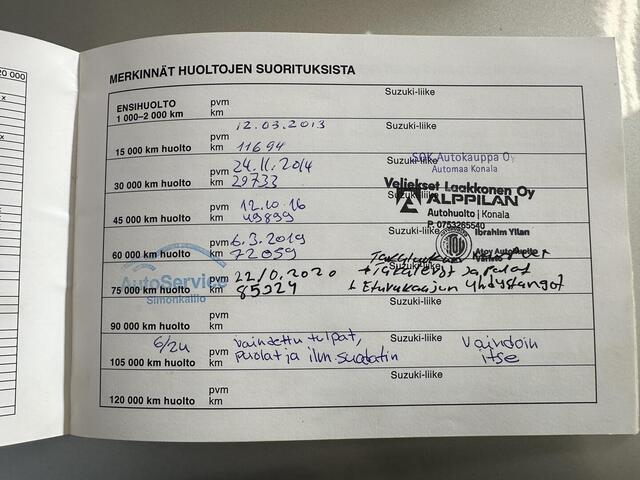 20 000
x
x
MERKINNÄT HUOLTOJEN SUORITUKSISTA
ENSIHUOLTO pvm Suzuki-liike
1 000–2 000 km km
pvm 12.03.2013 Suzuki-liike
15 000 km huolto km 11694
pvm 24.11.2014 Suzuki-liike SOK Autokauppa Oy
Automaa Konala
30 000 km huolto km 29733
Veljekset Laakkonen Oy
pvm 12.10.16 Suzuki-liike ALPPILAN
45 000 km huolto km 49899 Autohuolto | Konala
P. 0753265540
pvm 6.3.2019 Suzuki-liike Ibrahim Yilan
60 000 km huolto km 72059 Atoy Autohuolto
AutoService pvm 22/10.2020 Suzuki-liike
Simonkallio
75 000 km huolto km 85924 + Etutukaajun Yhdystangot
pvm Suzuki-liike
90 000 km huolto km
6/24 pvm vaihdettu tulpat, Suzuki-liike Vaihdoin
105 000 km huolto km puolat ja ilm.suodatin itse
pvm Suzuki-liike
120 000 km huolto km